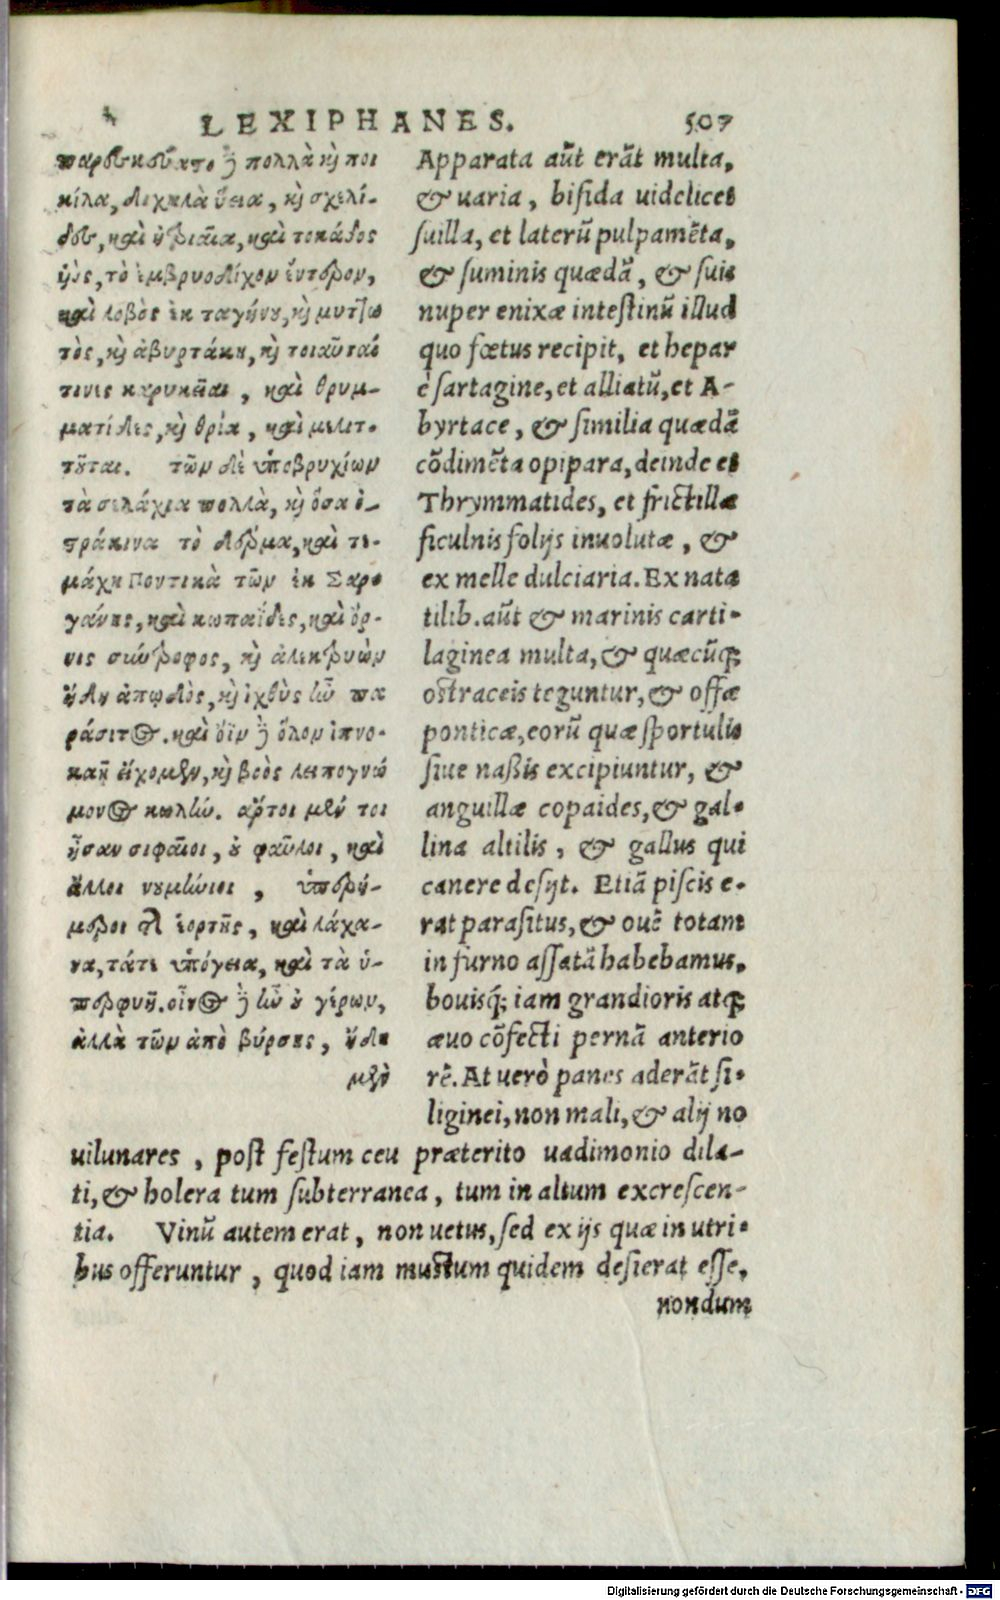 LEXIPHANES. 507
παρεσκεύατο δὲ πολλὰ κὶ ποι
κίλα, διχηλὰ ὕεια, κὶ σχελί-
δες, καὶ ἠτριαῖα, καὶ τοκάδος
ὑὸς, τὸ ἐμβρυοδόχον ἔντερον,
καὶ λοβὸς ἐκ ταγήνου, κὶ μυττω
τὸς, κὶ ἀβυρτάκη, κὶ τοιαῦταί
τινες καρυκεῖαι, καὶ θρυμ-
ματίδες, κὶ θρία, καὶ μελιτ-
τοῦται. τῶν δὲ ὑποβρυχίων
τὰ σελάχια πολλὰ, κὶ ὅσα ὀ-
στράκινα τὸ δέρμα, καὶ τε-
μάχη Ποντικὰ τῶν ἐκ Σαρ
γάνης, καὶ κωπαΐδες, καὶ ὄρ-
νις σύντροφος, κὶ ἀλεκτρυὼν
ἤδη ἀπῳδὸς, κὶ ἰχθὺς ἦν πα
ράσιτος. καὶ ὄϊν δὲ ὅλον ἰπνο-
καῆ εἴχομεν, κὶ βοὸς λειπογνώ
μονος κωλῆν. ἄρτοι μὲν τοι
ἦσαν σιφαῖοι, οὐ φαῦλοι, καὶ
ἄλλοι νουμήνιοι, ὑπερή-
μεροι τῆς ἑορτῆς, καὶ λάχα-
να, τά τε ὑπόγεια, καὶ τὰ ὑ-
περφυῆ. οἶνος δὲ ἦν οὐ γέρων,
ἀλλὰ τῶν ἀπὸ βύρσης, ἤδη
μὲν
Apparata aūt erāt multa,
& uaria, bifida uidelicet
suilla, et laterū pulpamēta,
& suminis quædā, & suis
nuper enixæ intestinū illud
quo fœtus recipit, et hepar
è sartagine, et alliatū, et A-
byrtace, & similia quædā
cōdimēta opipara, deinde et
Thrymmatides, et frictillæ
ficulnis folijs inuolutæ, &
ex melle dulciaria. Ex nata
tilib. aūt & marinis carti-
laginea multa, & quæcūq;
ostraceis teguntur, & offæ
ponticæ, eorū quæ sportulis
siue naßis excipiuntur, &
anguillæ copaides, & gal-
lina altilis, & gallus qui
canere desijt. Etiā piscis e-
rat parasitus, & ouē totam
in furno assatā habebamus,
bouisq́; iam grandioris atq;
æuo cōfecti pernā anterio
rē. At uerò panes aderāt si-
liginei, non mali, & alij no
uilunares, post festum ceu præterito uadimonio dila-
ti, & holera tum subterranea, tum in altum excrescen-
tia. Vinū autem erat, non uetus, sed ex ijs quæ in utri-
bus offeruntur, quod iam mustum quidem desierat esse,
nondum
Digitalisierung gefördert durch die Deutsche Forschungsgemeinschaft - DFG